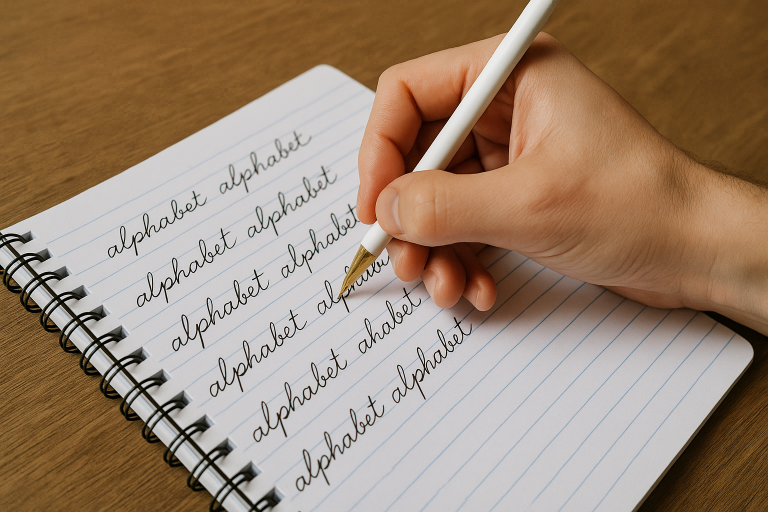 alphabet alphabet
alphabet alphabet
alphabet alphabet
alphabet
alphabet ahabet
alphabet alphabet